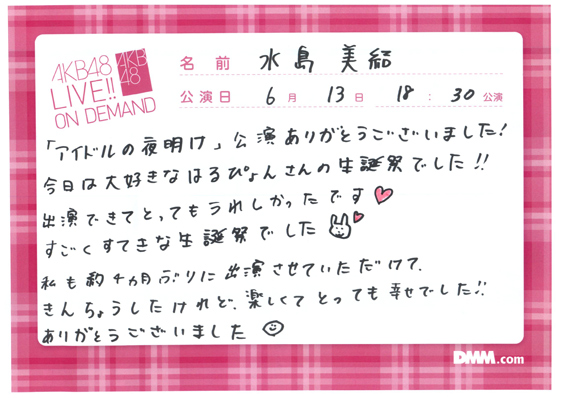 AKB48
LIVE!!
ON DEMAND
AKB
48
名前 水島 美結
公演日 6月 13日 18:30公演
「アイドルの夜明け」公演ありがとうございました!
今日は大好きなはるぴょんさんの生誕祭でした!!
出演できてとってもうれしかったです
すごくすてきな生誕祭でした
私も約4ヵ月ぶりに出演させていただけて、
きんちょうしたけれど、楽しくてとっても幸せでした!!
ありがとうございました
DMM.com